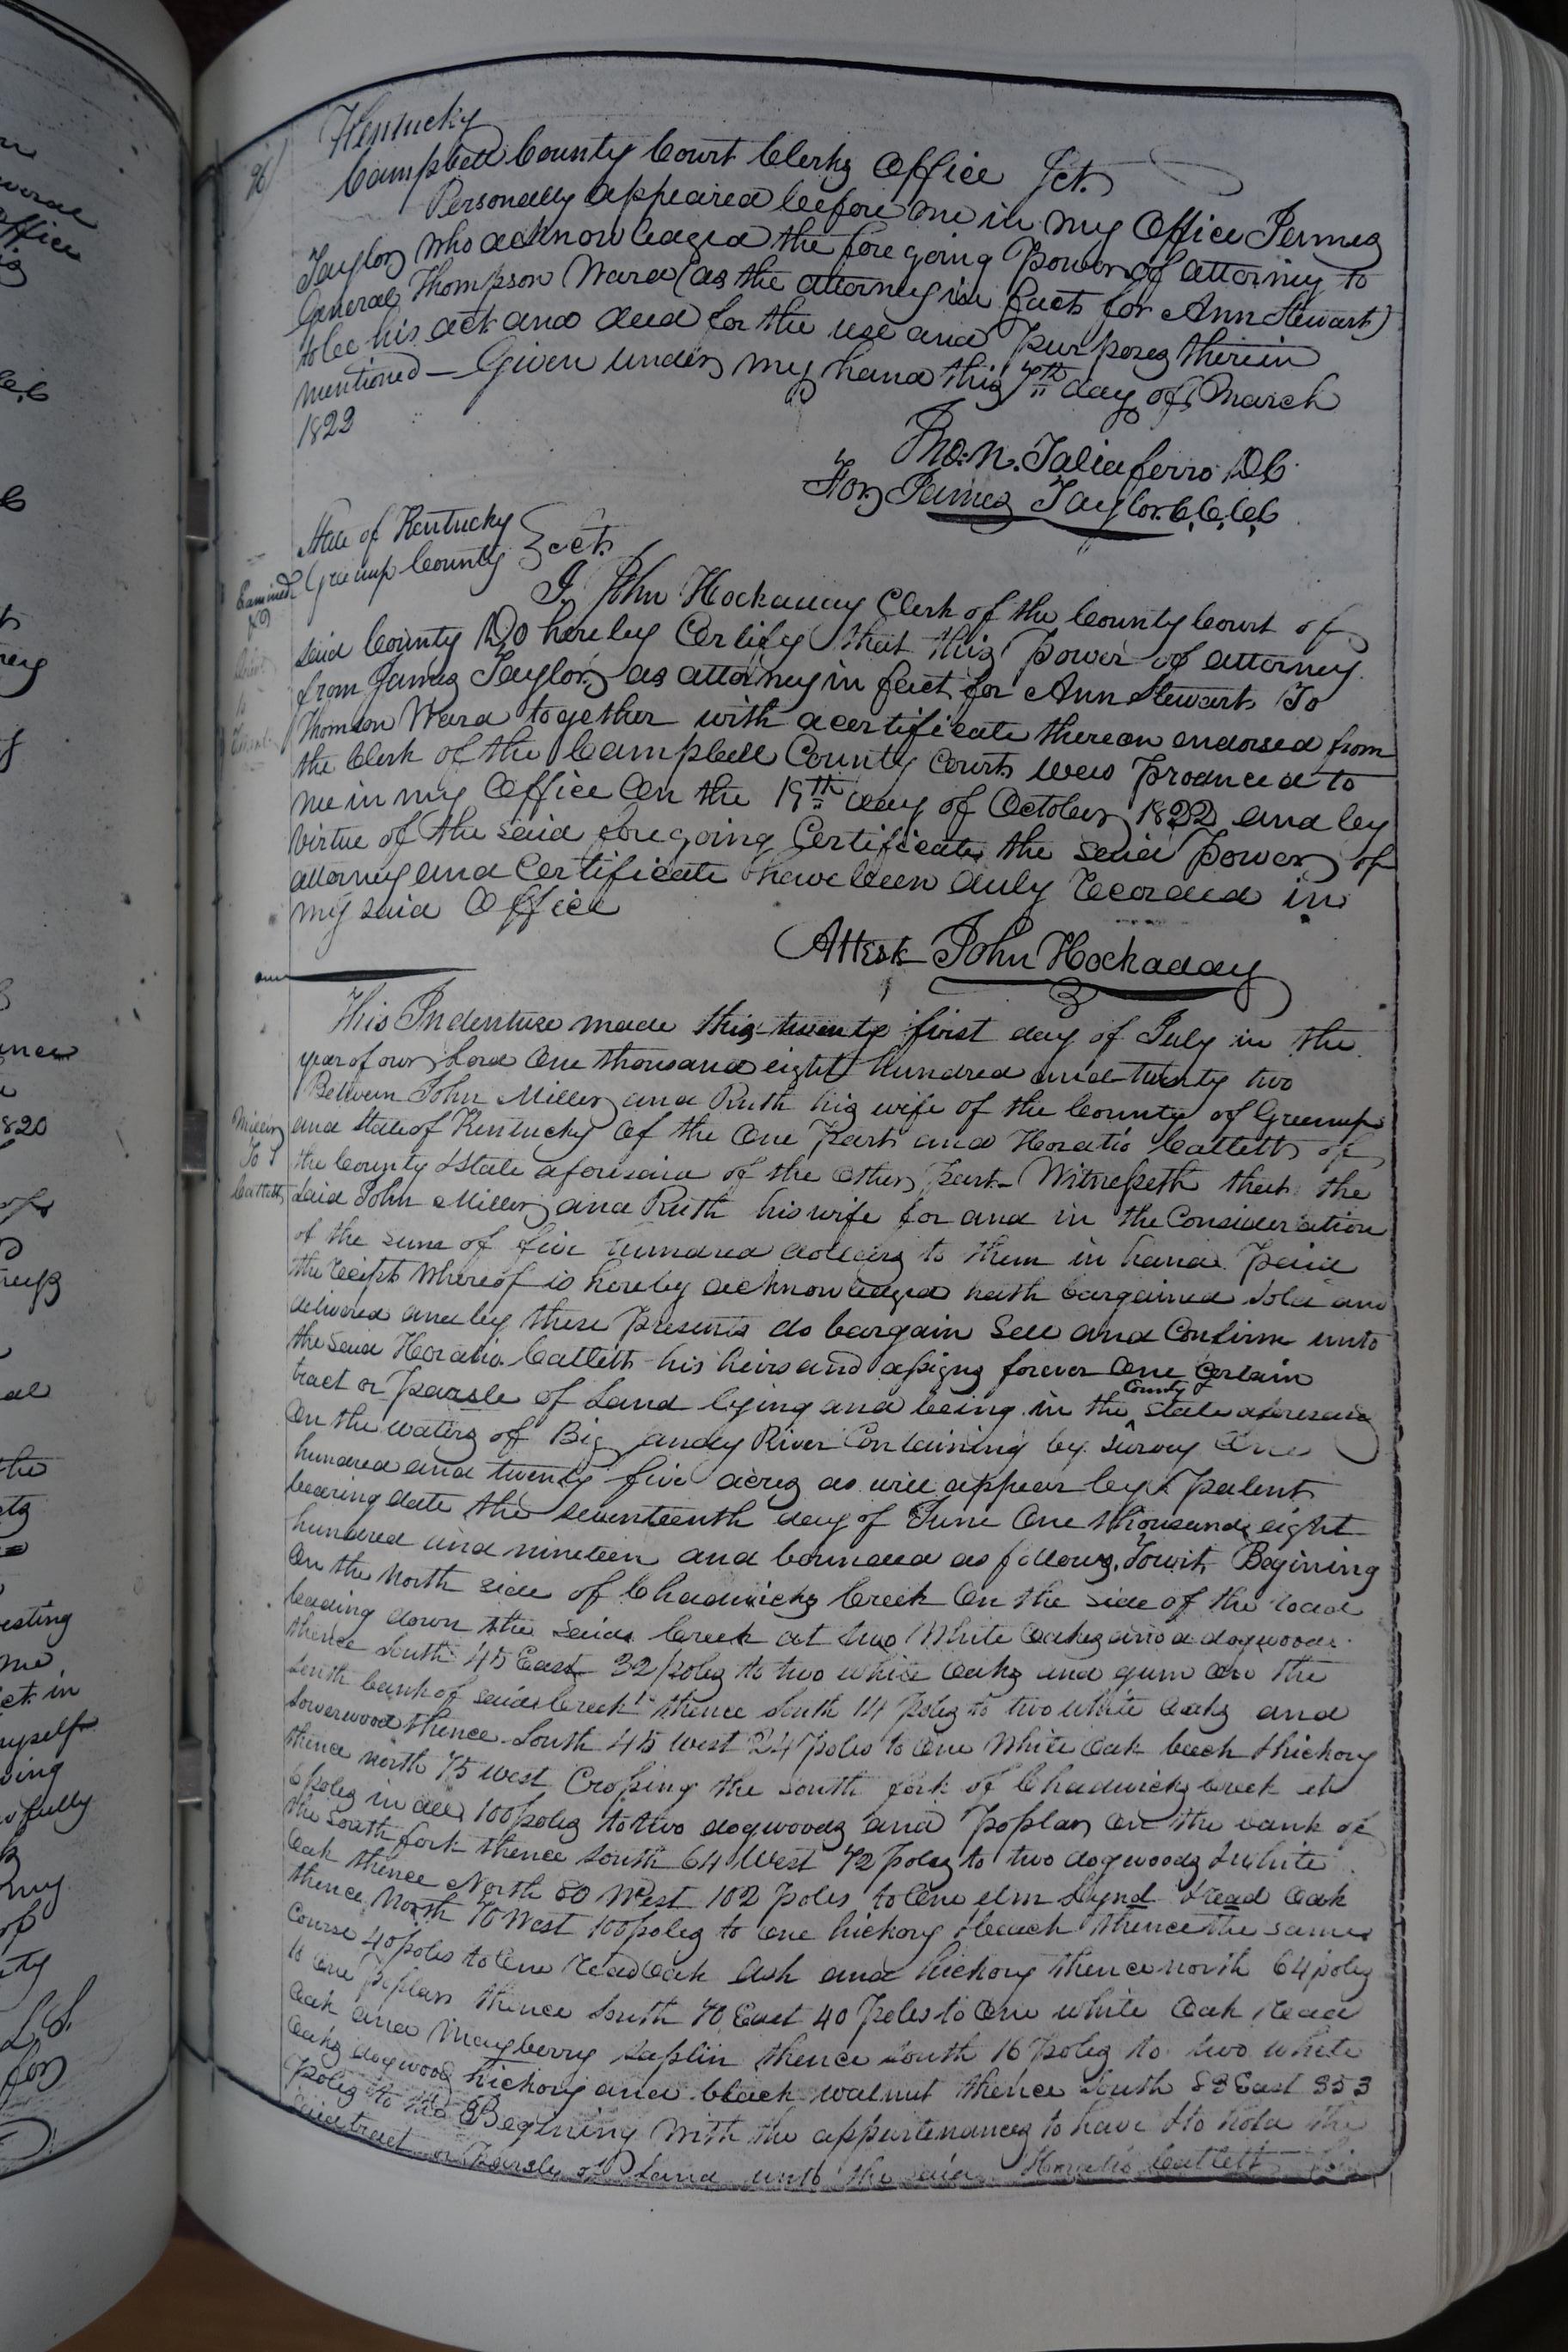 Kentucky
Campbell County Court Clerks Office Sct.
Personally appeared before me in my Office James
Taylor who acknowledged the foregoing Power of attorney to
General Thompson Ward (as the attorney in fact for Ann Stewart)
to be his act and deed for the use and Purposes therein
mentioned — Given under my hand this 7th day of March
1822
Tho. N. Taliaferro D.C.
For James Taylor C.C.C.C.
State of Kentucky
Greenup County } sct.
Examined
I John Hockaday Clerk of the County Court of
said County Do hereby Certify that this Power of attorney
from James Taylor as attorney in fact for Ann Stewart To
Thomson Ward together with a certificate thereon endorsed from
the Clerk of the Campbell County Court was produced to
me in my Office On the 19th day of October 1822 and by
virtue of the said foregoing Certificate the said Power of
attorney and Certificate have been duly Recorded in
my said Office
Attest John Hockaday
This Indenture made this twenty first day of July in the
year of our Lord One thousand eight hundred and twenty two
Between John Miller and Ruth his wife of the County of Greenup
Miller
To
Catlett
and State of Kentucky of the One Part and Horatio Catlett of
the County & State aforesaid of the Other Part Witnesseth that the
said John Miller and Ruth his wife for and in the Consideration
of the sum of five hundred dollars to them in hand Paid
the Receipt whereof is hereby acknowledged hath bargained Sold and
delivered and by these Presents do bargain Sell and Confirm unto
the said Horatio Catlett his heirs and assigns forever One Certain
tract or Parsle of Land lying and being in the County & State aforesaid
On the waters of Big Sandy River Containing by Survey One
hundred and twenty five acres as will appear by Patent
bearing date the seventeenth day of June One thousand eight
hundred and nineteen and bounded as follows, Towit, Begining
On the North side of Chadwicks Creek On the side of the road
leading down the said Creek at two White Oaks and a dogwood
thence South 45 East 32 poles to two white Oaks and gum on the
South bank of said Creek thence South 14 poles to two white Oaks and
Sowerwood thence South 45 West 24 poles to One White Oak beech & hickory
thence north 75 West Crossing the South fork of Chadwicks Creek at
6 poles in all 100 poles to two dogwoods and Poplar On the bank of
the South fork thence South 64 West 72 poles to two dogwoods & white
Oak thence North 80 West 102 poles to One elm Lynd & read Oak
thence North 70 West 100 poles to One hickory & beach thence the same
Course 40 poles to One Read Oak Ash and hickory thence north 64 poles
to One Poplar thence South 70 East 40 Poles to One white Oak read
Oak and Mayberry saplin thence South 16 Poles to two white
Oaks dogwood hickory and black walnut thence South 83 East 353
Poles to the Begining With the appurtenances to have & to hold the
said tract or Parsle of Land unto the said Horatio Catlett his